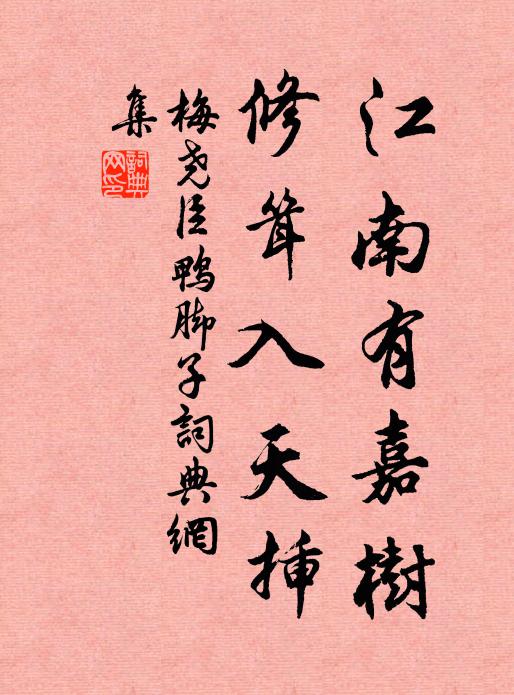 江南有嘉樹
修聳入天揷
梅堯臣鴨脚子詞典網
集
詞典
网印